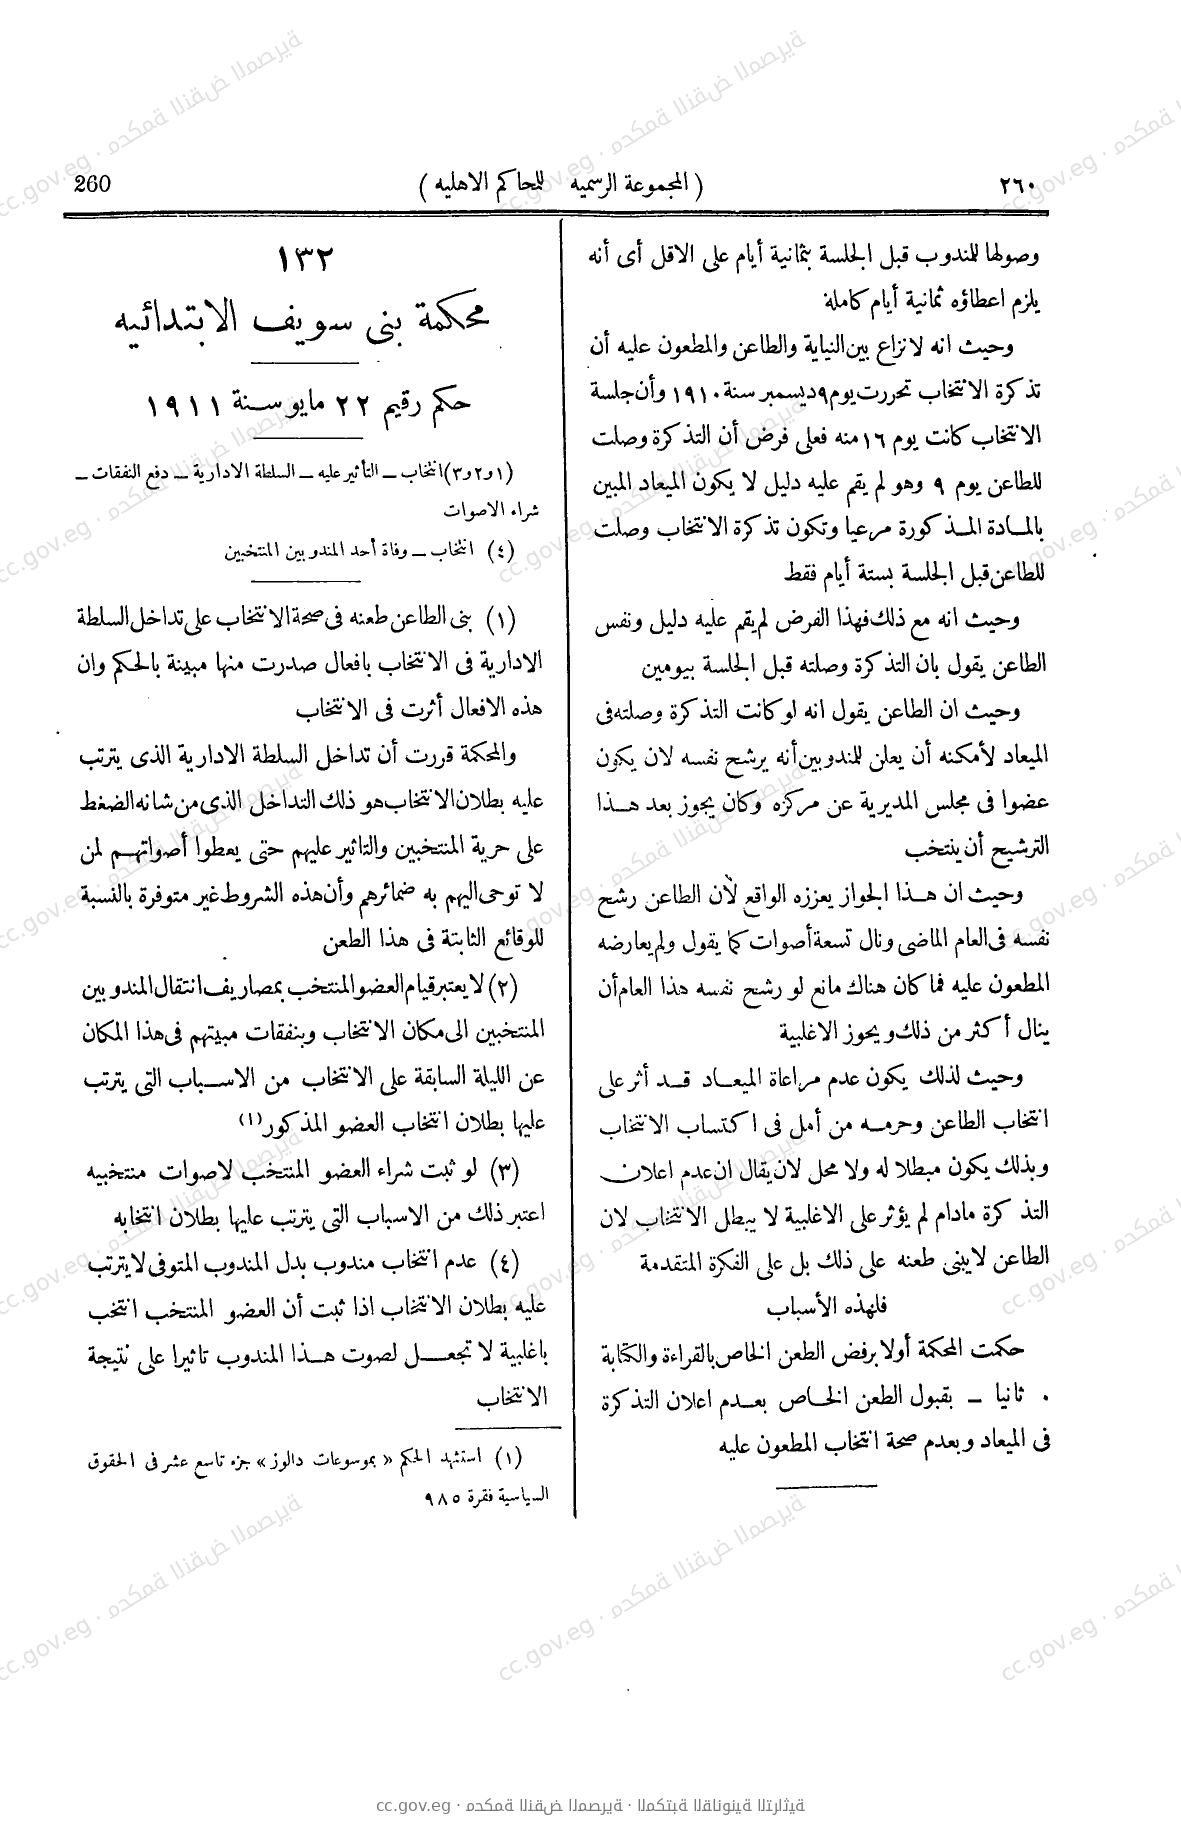 ٢٦٠
( المجموعة الرسميه للمحاكم الاهليه )
260
وصولها للمندوب قبل الجلسة بثمانية أيام على الاقل أى أنه
يلزم اعطاؤه ثمانية أيام كاملة
وحيث انه لا نزاع بين النيابة والطاعن والمطعون عليه أن
تذكرة الانتخاب تحررت يوم ٩ ديسمبر سنة ١٩١٠ وأن جلسة
الانتخاب كانت يوم ١٦ منه فعلى فرض أن التذكرة وصلت
للطاعن يوم ٩ وهو لم يقم عليه دليل لا يكون الميعاد المبين
بالمادة المذكورة مرعيا وتكون تذكرة الانتخاب وصلت
للطاعن قبل الجلسة بستة أيام فقط
وحيث انه مع ذلك فهذا الفرض لم يقم عليه دليل ونفس
الطاعن يقول بان التذكرة وصلته قبل الجلسة بيومين
وحيث ان الطاعن يقول انه لو كانت التذكرة وصلته فى
الميعاد لأمكنه أن يعلن للمندوبين أنه يرشح نفسه لان يكون
عضوا فى مجلس المديرية عن مركزه وكان يجوز بعد هذا
الترشيح أن ينتخب
وحيث ان هذا الجواز يعززه الواقع لأن الطاعن رشح
نفسه فى العام الماضى ونال تسعة أصوات كما يقول ولم يعارضه
المطعون عليه فما كان هناك مانع لو رشح نفسه هذا العام أن
ينال أكثر من ذلك ويحوز الاغلبية
وحيث لذلك يكون عدم مراعاة الميعاد قد أثر على
انتخاب الطاعن وحرمه من أمل فى اكتساب الانتخاب
وبذلك يكون مبطلا له ولا محل لان يقال ان عدم اعلان
التذكرة مادام لم يؤثر على الاغلبية لا يبطل الانتخاب لان
الطاعن لا يبنى طعنه على ذلك بل على الفكرة المتقدمة
فلهذه الأسباب
حكمت المحكمة أولا برفض الطعن الخاص بالقراءة والكتابة
ثانيا — بقبول الطعن الخاص بعدم اعلان التذكرة
فى الميعاد وبعدم صحة انتخاب المطعون عليه
١٣٢
محكمة بنى سويف الابتدائيه
حكم رقيم ٢٢ مايو سنة ١٩١١
(١و٢و٣) انتخاب — التأثير عليه — السلطة الادارية — دفع النفقات —
شراء الاصوات
(٤) انتخاب — وفاة أحد المندوبين المنتخبين
(١) بنى الطاعن طعنه فى صحة الانتخاب على تداخل السلطة
الادارية فى الانتخاب بافعال صدرت منها مبينة بالحكم وان
هذه الافعال أثرت فى الانتخاب
والمحكمة قررت أن تداخل السلطة الادارية الذى يترتب
عليه بطلان الانتخاب هو ذلك التداخل الذى من شانه الضغط
على حرية المنتخبين والتاثير عليهم حتى يعطوا أصواتهم لمن
لا توحى اليهم به ضمائرهم وأن هذه الشروط غير متوفرة بالنسبة
للوقائع الثابتة فى هذا الطعن
(٢) لا يعتبر قيام العضو المنتخب بمصاريف انتقال المندوبين
المنتخبين الى مكان الانتخاب وبنفقات مبيتهم فى هذا المكان
عن الليلة السابقة على الانتخاب من الاسباب التى يترتب
عليها بطلان انتخاب العضو المذكور(١)
(٣) لو ثبت شراء العضو المنتخب لاصوات منتخبيه
اعتبر ذلك من الاسباب التى يترتب عليها بطلان انتخابه
(٤) عدم انتخاب مندوب بدل المندوب المتوفى لا يترتب
عليه بطلان الانتخاب اذا ثبت أن العضو المنتخب انتخب
باغلبية لا تجعل لصوت هذا المندوب تاثيرا على نتيجة
الانتخاب
(١) استشهد الحكم « بموسوعات دالوز » جزء تاسع عشر فى الحقوق
السياسية فقرة ٩٨٥
cc.gov.eg · محكمة النقض المصرية · المكتبة القانونية التراثية